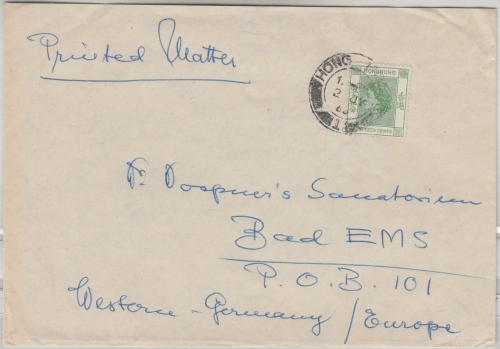 Printed Matter
HONG
HONG KONG
FIFTEEN CENTS
Dr. Doepner's Sanatorium
Bad EMS
P.O.B. 101
Western-Germany / Europe